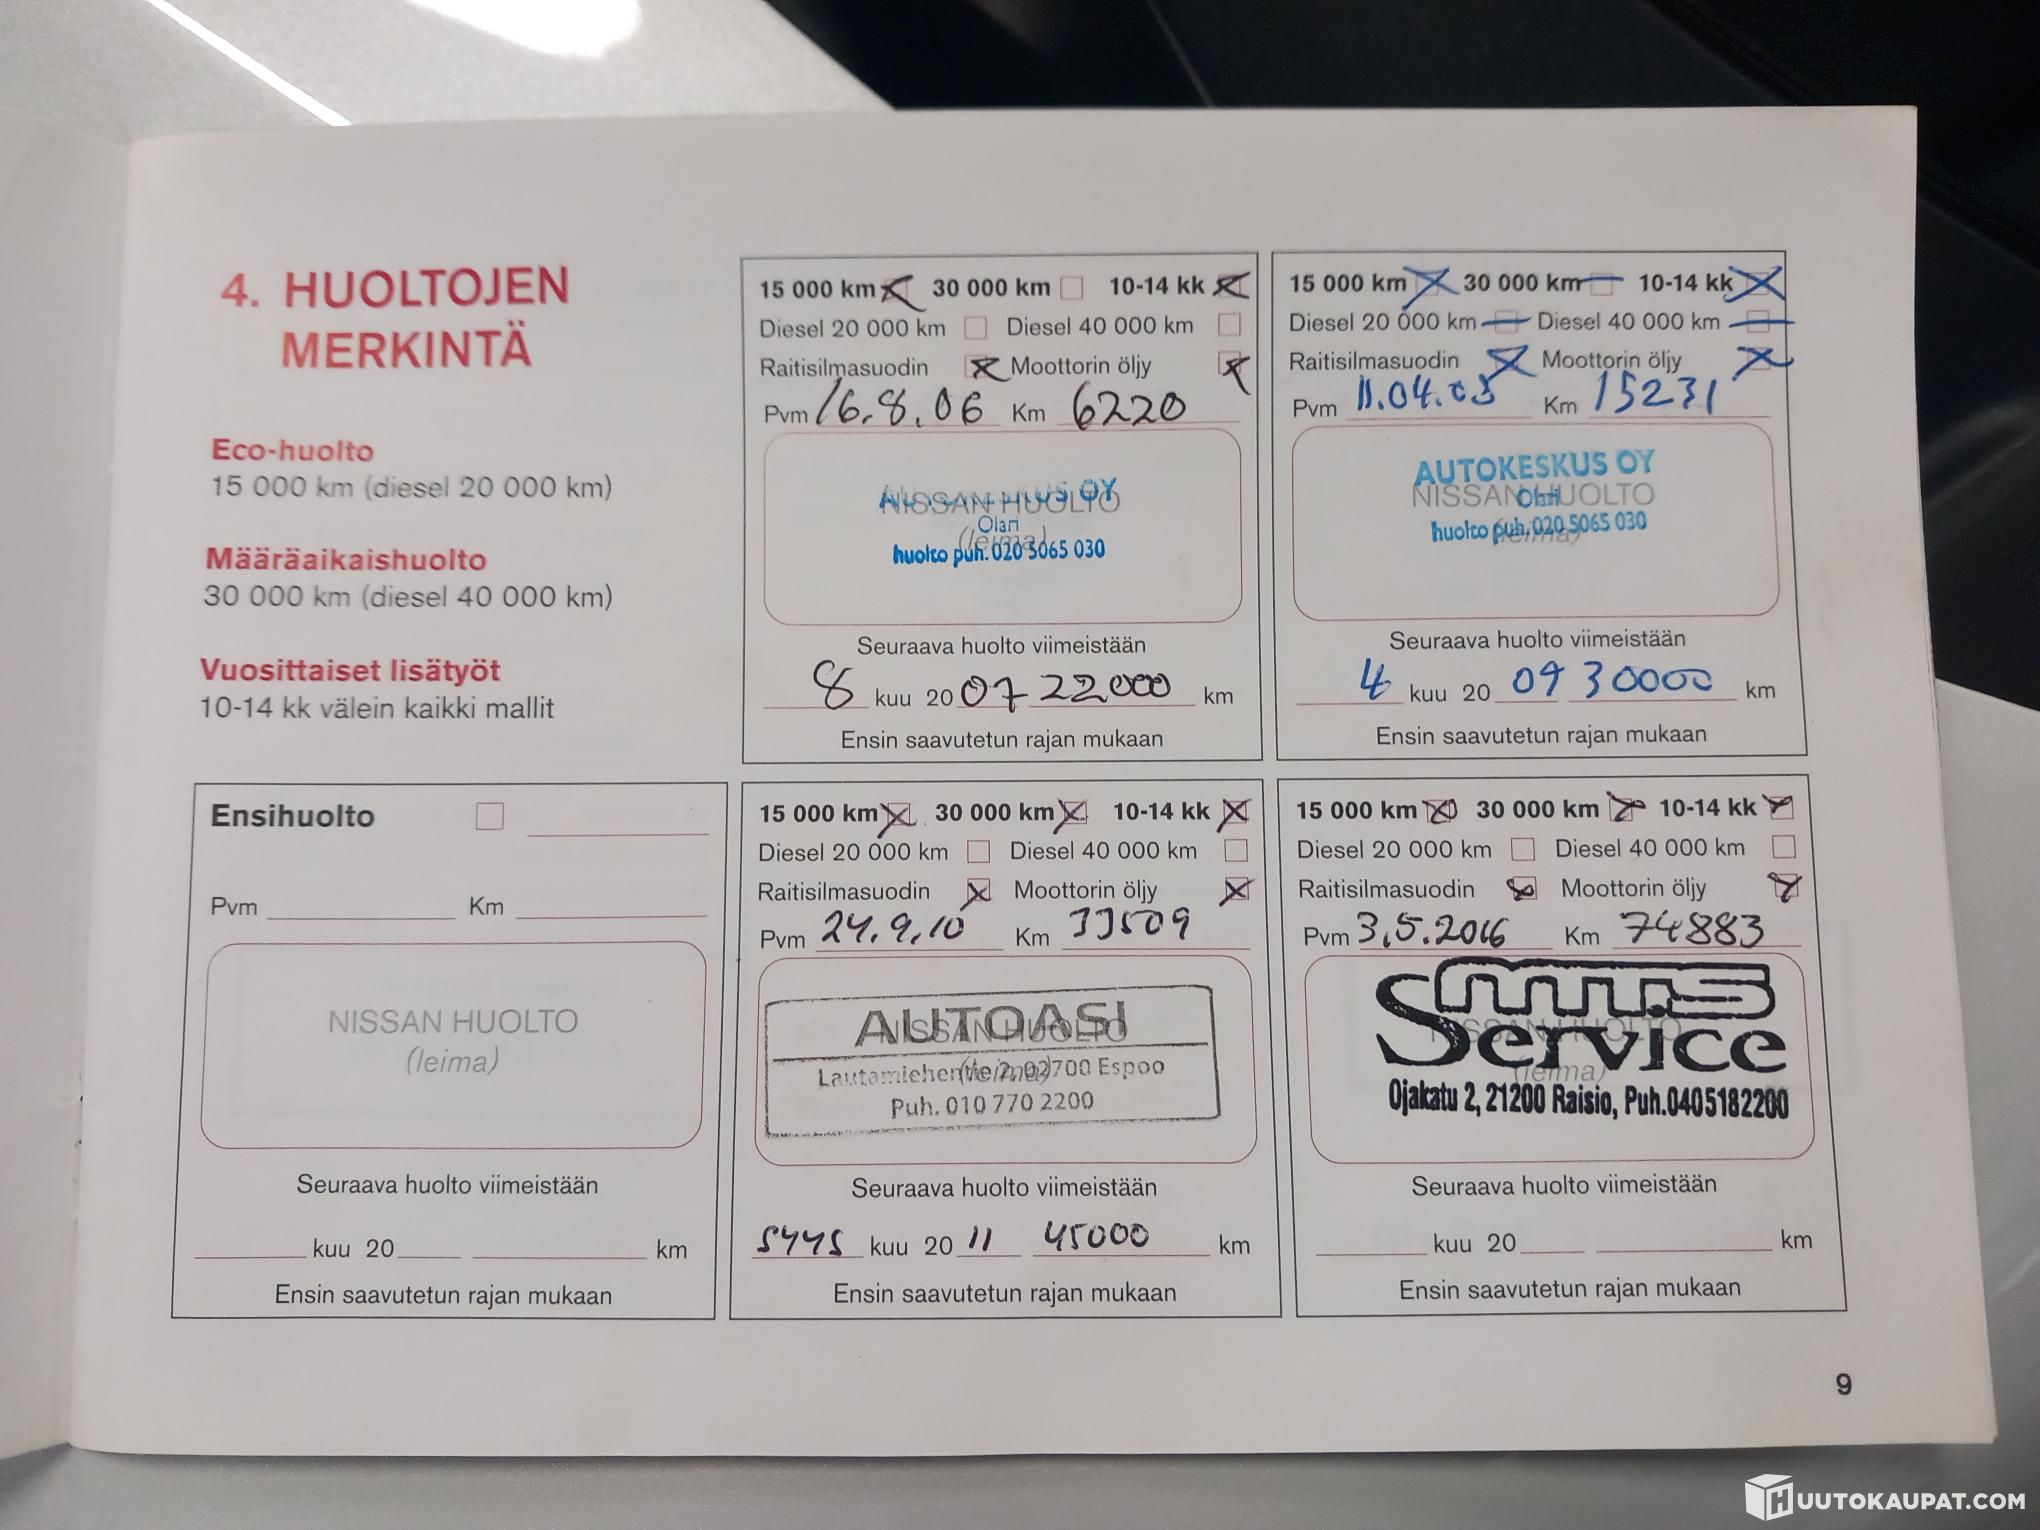 4. HUOLTOJEN
MERKINTÄ
Eco-huolto
15 000 km (diesel 20 000 km)
Määräaikaishuolto
30 000 km (diesel 40 000 km)
Vuosittaiset lisätyöt
10-14 kk välein kaikki mallit
15 000 km 30 000 km 10-14 kk
Diesel 20 000 km Diesel 40 000 km
Raitisilmasuodin Moottorin öljy
Pvm 16.8.06 Km 6220
NISSAN HUOLTO
OY
Olari
(leima)
huolto puh. 020 5065 030
Seuraava huolto viimeistään
8 kuu 2007 22000 km
Ensin saavutetun rajan mukaan
15 000 km 30 000 km 10-14 kk
Diesel 20 000 km Diesel 40 000 km
Raitisilmasuodin Moottorin öljy
Pvm 11.04.08 Km 15231
AUTOKESKUS OY
NISSAN HUOLTO
Olari
huolto puh. 020 5065 030
(leima)
Seuraava huolto viimeistään
4 kuu 20 09 30000 km
Ensin saavutetun rajan mukaan
Ensihuolto
Pvm Km
NISSAN HUOLTO
(leima)
Seuraava huolto viimeistään
kuu 20 km
Ensin saavutetun rajan mukaan
15 000 km 30 000 km 10-14 kk
Diesel 20 000 km Diesel 40 000 km
Raitisilmasuodin Moottorin öljy
Pvm 24.9.10 Km 33509
AUTOASI
NISSAN HUOLTO
(leima)
Lautamiehentie 2, 02700 Espoo
Puh. 010 770 2200
Seuraava huolto viimeistään
SYYS kuu 20 11 45000 km
Ensin saavutetun rajan mukaan
15 000 km 30 000 km 10-14 kk
Diesel 20 000 km Diesel 40 000 km
Raitisilmasuodin Moottorin öljy
Pvm 3.5.2016 Km 74883
NISSAN HUOLTO
Service
(leima)
Ojakatu 2, 21200 Raisio, Puh.0405182200
Seuraava huolto viimeistään
kuu 20 km
Ensin saavutetun rajan mukaan
9
HUUTOKAUPAT.COM